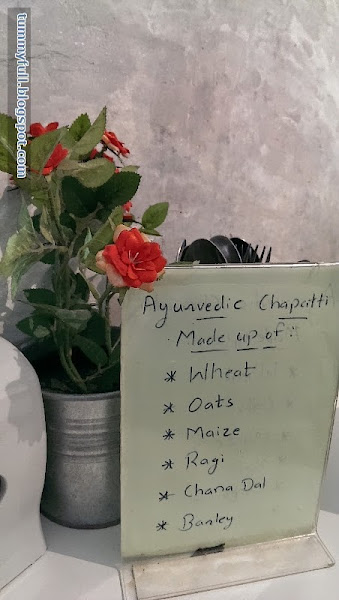 tummyfull.blogspot.com
Ayurvedic Chapatti
Made up of:
* Wheat
* Oats
* Maize
* Ragi
* Chana Dal
* Barley